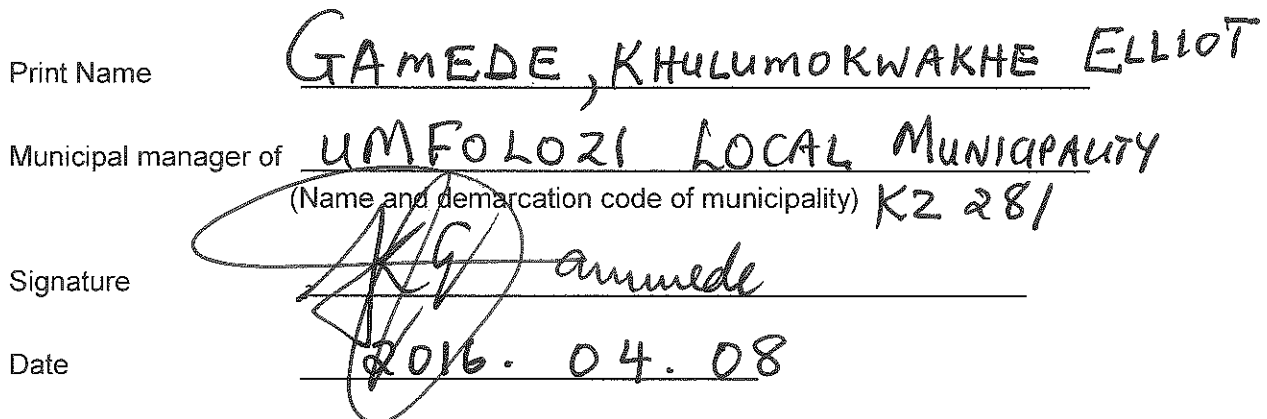 Print Name GAMEDE, KHULUMOKWAKHE ELLIOT
Municipal manager of UMFOLOZI LOCAL MUNICIPALITY
(Name and demarcation code of municipality) KZ 281
Signature KG
Date 2016. 04. 08